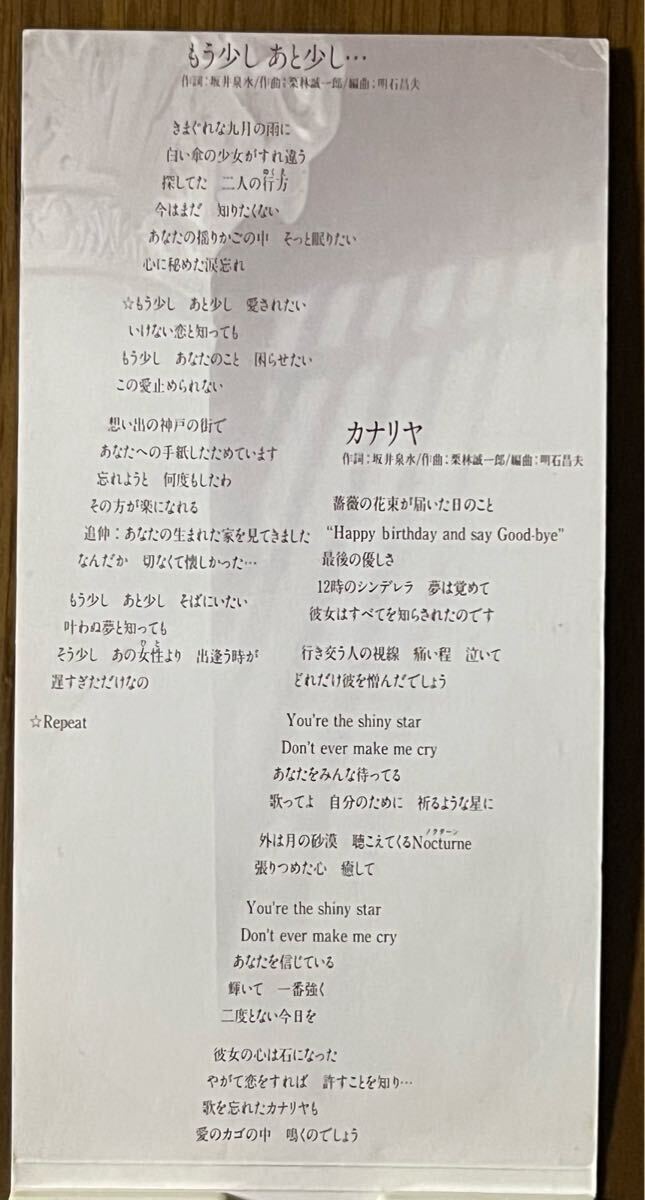 もう少し あと少し…
作詞:坂井泉水/作曲:栗林誠一郎/編曲:明石昌夫
きまぐれな九月の雨に
白い傘の少女がすれ違う
探してた 二人の行方
今はまだ 知りたくない
あなたの揺りかごの中 そっと眠りたい
心に秘めた涙忘れ
☆もう少し あと少し 愛されたい
いけない恋と知っても
もう少し あなたのこと 困らせたい
この愛止められない
想い出の神戸の街で
あなたへの手紙したためています
忘れようと 何度もしたわ
その方が楽になれる
追伸:あなたの生まれた家を見てきました
なんだか 切なくて懐しかった…
もう少し あと少し そばにいたい
叶わぬ夢と知っても
ひと
そう少し あの女性より 出逢う時が
遅すぎただけなの
☆Repeat
カナリヤ
作詞:坂井泉水/作曲:栗林誠一郎/編曲:明石昌夫
薔薇の花束が届いた日のこと
“Happy birthday and say Good-bye”
最後の優しさ
12時のシンデレラ 夢は覚めて
彼女はすべてを知らされたのです
行き交う人の視線 痛い程 泣いて
どれだけ彼を憎んだでしょう
You're the shiny star
Don't ever make me cry
あなたをみんな待ってる
歌ってよ 自分のために 祈るような星に
ノクターン
外は月の砂漠 聴こえてくるNocturne
張りつめた心 癒して
You're the shiny star
Don't ever make me cry
あなたを信じている
輝いて 一番強く
二度とない今日を
彼女の心は石になった
やがて恋をすれば 許すことを知り…
歌を忘れたカナリヤも
愛のカゴの中 鳴くのでしょう